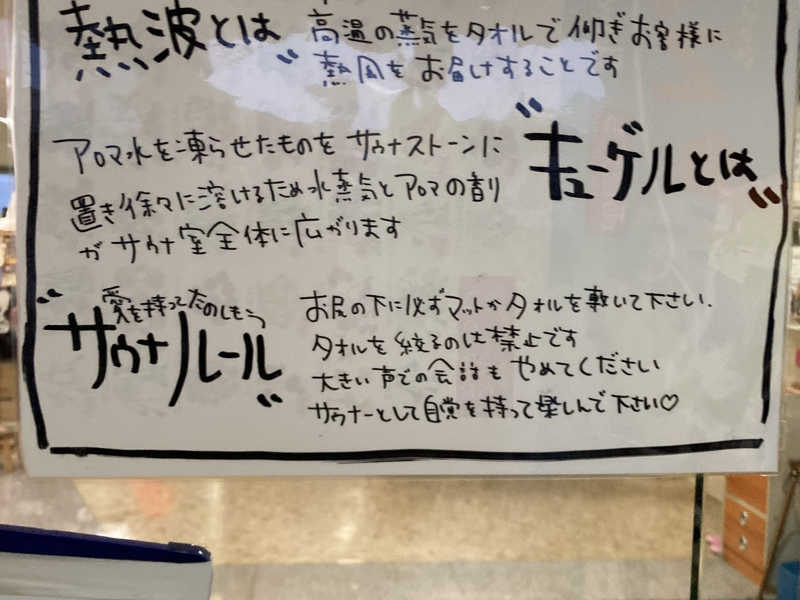 熱波とは"
高温の蒸気をタオルで仰ぎお客様に
熱風をお届けすることです
"キューゲルとは"
アロマ水を凍らせたものをサウナストーンに
置き徐々に溶けるため水蒸気とアロマの香り
がサウナ室全体に広がります
愛を持ってたのしもう
"サウナルール"
お尻の下に必ずマットかタオルを敷いて下さい.
タオルを絞るのは禁止です
大きい声での会話もやめてください
サウナーとして自覚を持って楽しんで下さい♡